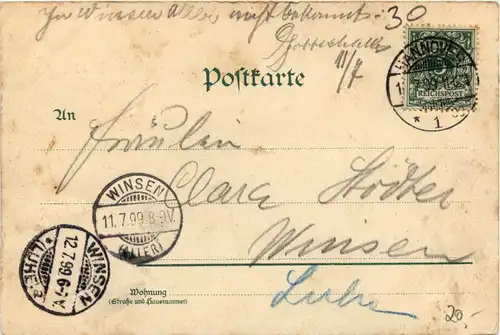 In Winsen Aller nicht bekannt.
30
11/7
HANNOVER
REICHSPOST
* 1
Postkarte
An
Fräulein
Clara Städter
WINSEN
11.7.99.8-9V.
(ALLER)
Winsen
WINSEN
12.7.99.6-7A.
(LUHE)
Luhe
Wohnung
(Straße und Hausnummer)
20,-